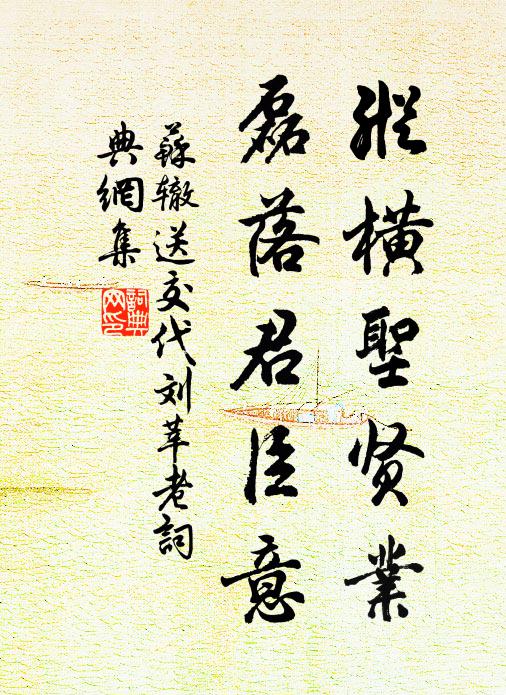 縱橫聖贤業
磊落君臣意
蘇辙送交代刘莘老詞
典網集
詞典网印